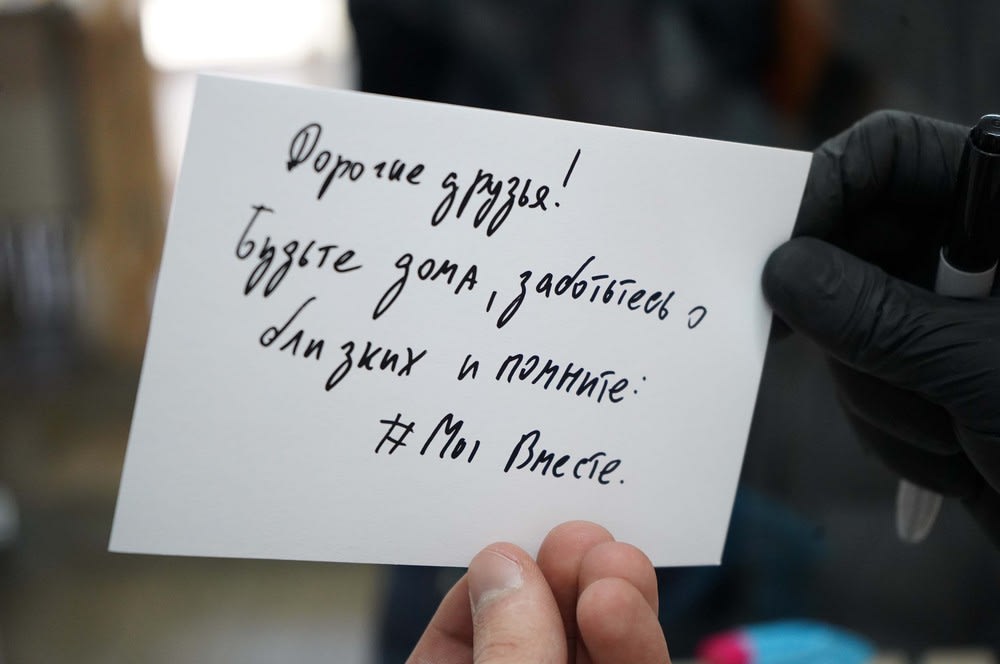 Дорогие друзья!
Будьте дома, заботьтесь о
близких и помните:
# Мы Вместе.